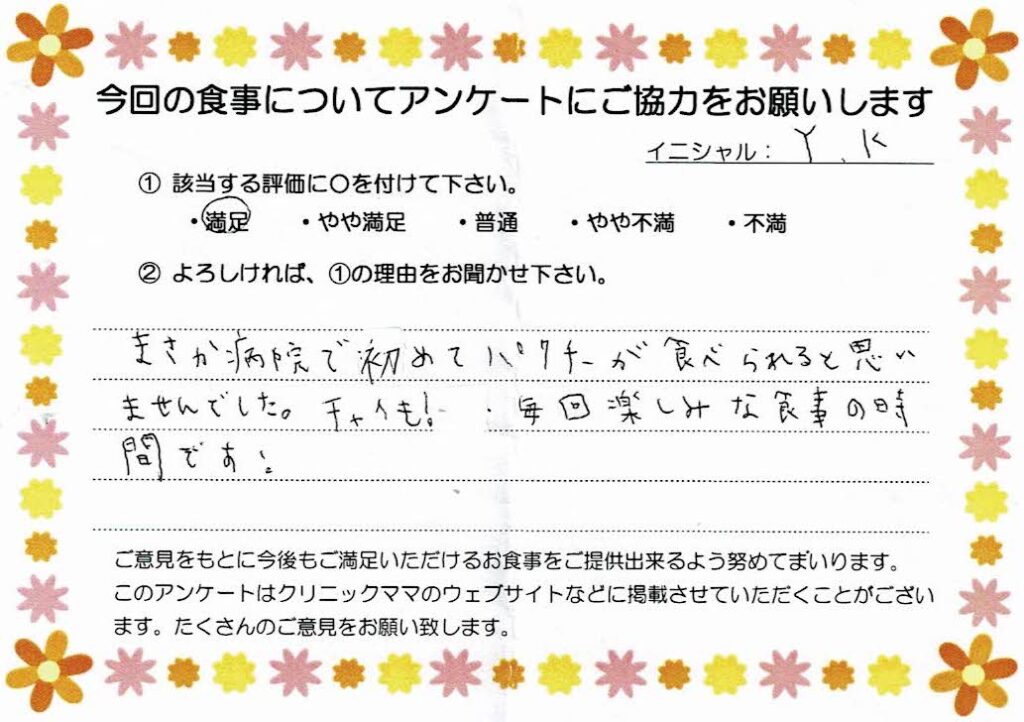 今回の食事についてアンケートにご協力をお願いします
イニシャル： Y.K
① 該当する評価に〇を付けて下さい。
・満足 ・やや満足 ・普通 ・やや不満 ・不満
② よろしければ、①の理由をお聞かせ下さい。
まさか病院で初めてパクチーが食べられると思い
ませんでした。チャイも! 毎回楽しみな食事の時
間です!
ご意見をもとに今後もご満足いただけるお食事をご提供出来るよう努めてまいります。
このアンケートはクリニックママのウェブサイトなどに掲載させていただくことがござい
ます。たくさんのご意見をお願い致します。